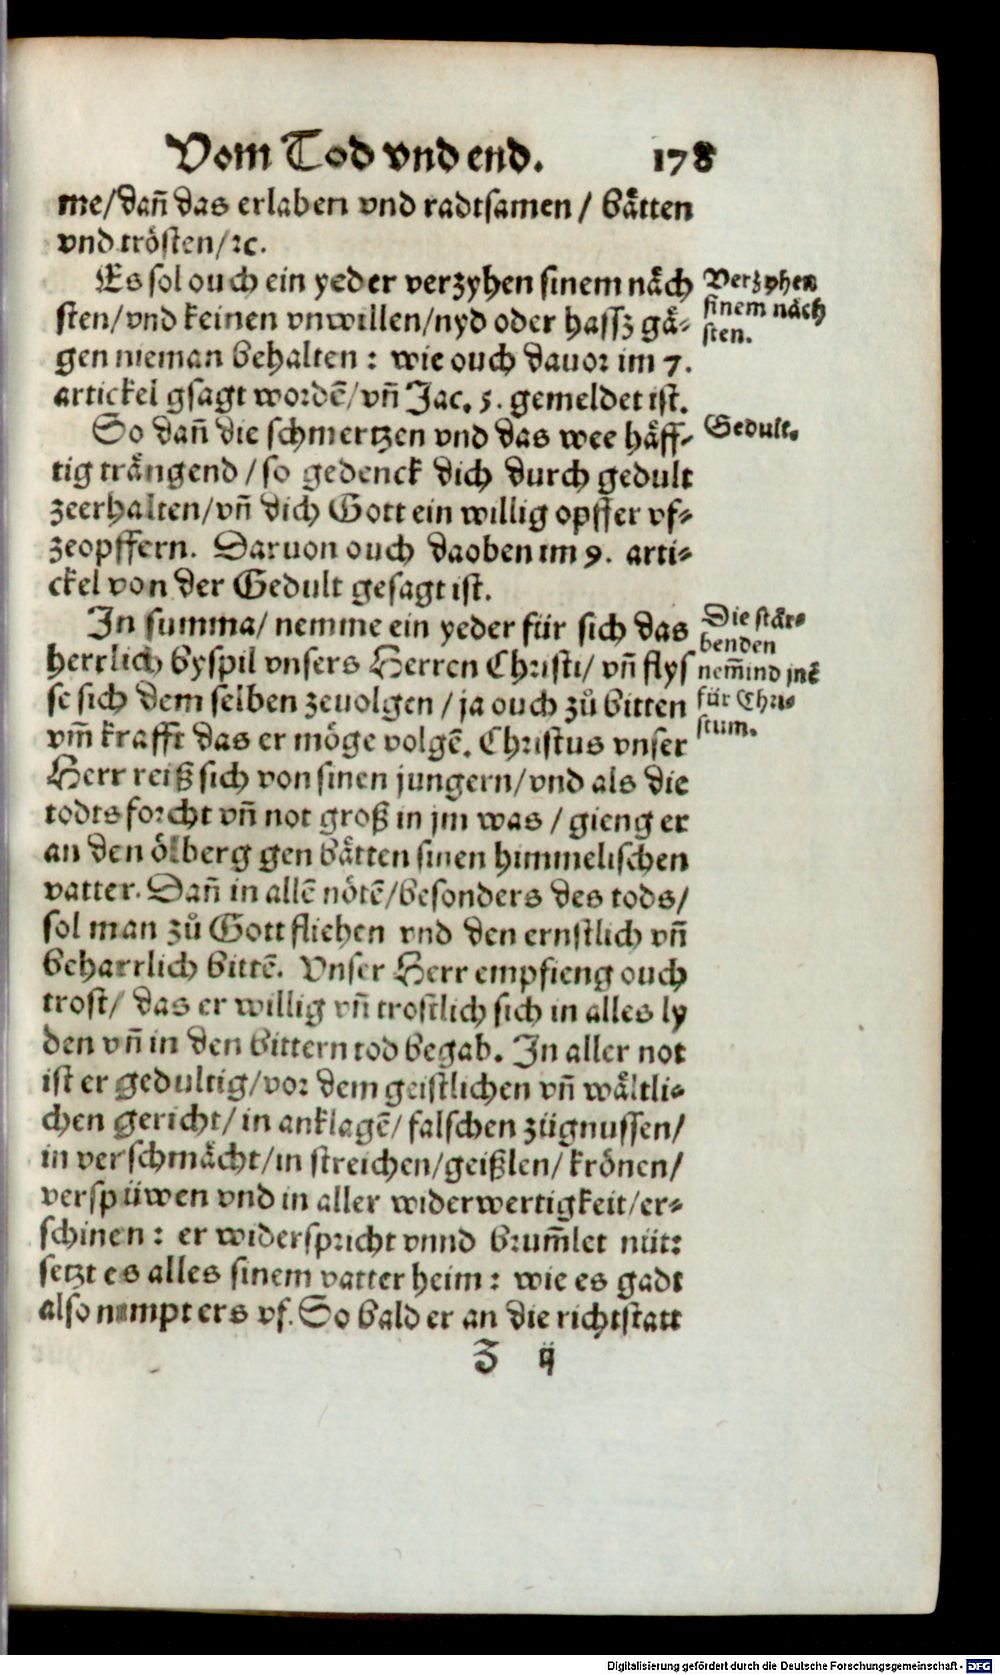 Vom Tod vnd end. 178
me/dañ das erlaben vnd radtsamen / bätten
vnd trösten/ꝛc.
Es sol ouch ein yeder verzyhen sinem näch
sten/vnd keinen vnwillen/nyd oder hassz gä-
gen nieman behalten: wie ouch dauor im 7.
artickel gsagt wordẽ/vñ Jac. 5. gemeldet ist.
Verzyhen
sinem näch
sten.
So dañ die schmertzen vnd das wee häff-
tig trängend/so gedenck dich durch gedult
zeerhalten/vñ dich Gott ein willig opffer vf-
zeopffern. Daruon ouch daoben im 9. arti-
ckel von der Gedult gesagt ist.
Gedult.
In summa/ nemme ein yeder für sich das
herrlich byspil vnsers Herren Christi/ vñ flys
se sich dem selben zeuolgen/ja ouch zů bitten
vm̃ krafft das er möge volgẽ. Christus vnser
Herr reiß sich von sinen jungern/vnd als die
todts forcht vñ not groß in jm was / gieng er
an den ölberg gen bätten sinen himmelischen
vatter. Dañ in allẽ nötẽ/besonders des tods/
sol man zů Gott fliehen vnd den ernstlich vñ
beharrlich bittẽ. Vnser Herr empfieng ouch
trost/ das er willig vñ trostlich sich in alles ly
den vñ in den bittern tod begab. In aller not
ist er gedultig/vor dem geistlichen vñ wältli-
chen gericht/ in anklagẽ/ falschen zügnussen/
in verschmächt/in streichen/geißlen/ krönen/
verspüwen vnd in aller widerwertigkeit/er-
schinen: er widerspricht vnnd brum̃let nüt:
setzt es alles sinem vatter heim: wie es gadt
also nimpt ers vf. So bald er an die richtstatt
Die stär-
benden
nem̃ind jnẽ
für Chri-
stum.
Z ij
Digitalisierung gefördert durch die Deutsche Forschungsgemeinschaft - DFG